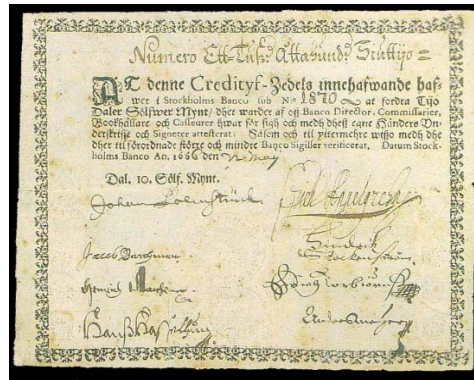 Numero Ett-Tuſ: Åttahund: Siuttijo =
AT denne Credityf-Zedels innehafwande haf-
wer i Stockholms Banco ſub N° 1870 at fordra Tijo
Daler Sölfwer Mynt/ dher warder af eſſ Banco Director, Commiſſarier,
Bookhållare och Caſſeurer hwar för ſigh och medh dheſſ egne Händers Vn-
derſkrifft och Signeter atteſterat: Såſom och til yttermehre wiſſo medh dhe
dher til förordnade ſtörre och mindre Banco Sigiller verificerat. Datum Stock-
holms Banco An. 1666 den May
Dal. 10. Sölf. Mynt.
Johan
Jacob
Hanß
Anders